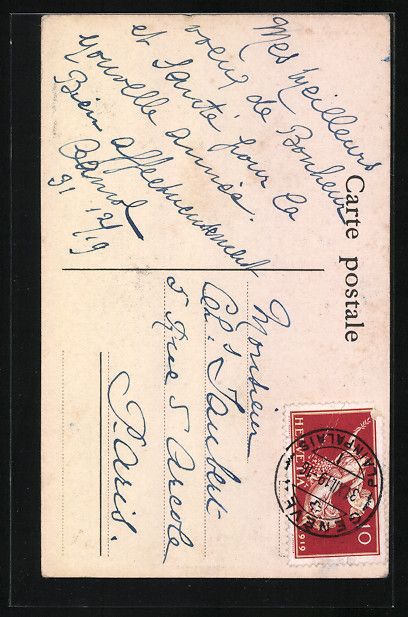 Carte postale
Mes meilleurs
voeux de Bonheur
et Santé pour la
nouvelle année.
Bien affectueusement
31 12/19
Monsieur
Ch.s Jaubert
5 Rue d'Arcole
Paris.
HELVETIA
10
1919
GENÈVE
PLAINPALAIS